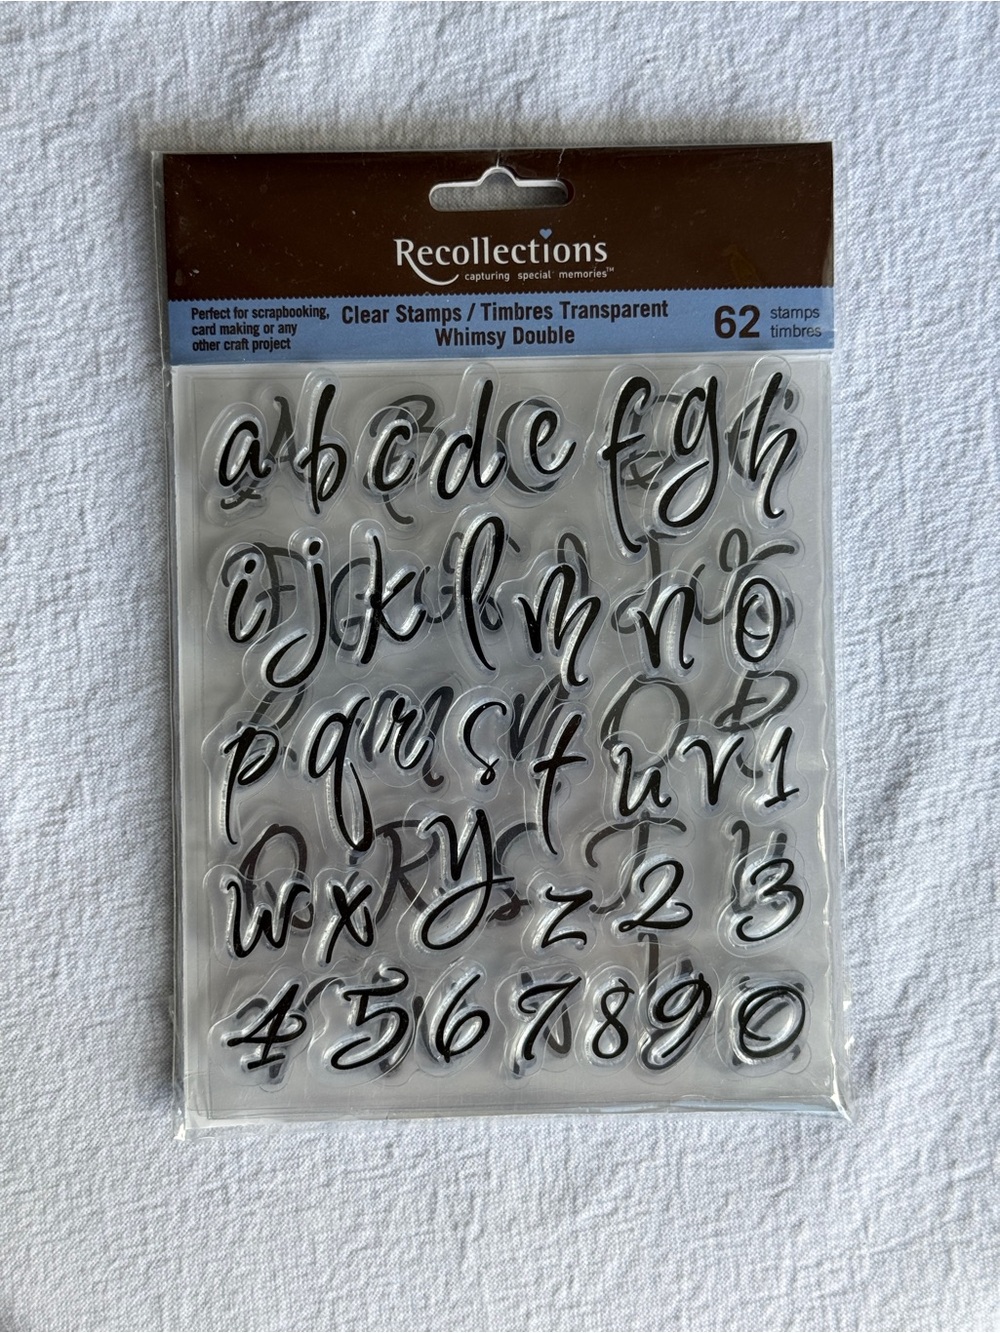 Recollections
capturing special memories™
Perfect for scrapbooking,
card making or any
other craft project
Clear Stamps / Timbres Transparent
Whimsy Double
62 stamps
timbres
a b c d e f g h
i j k l m n o
p q r s t u v 1
w x y z 2 3
4 5 6 7 8 9 0